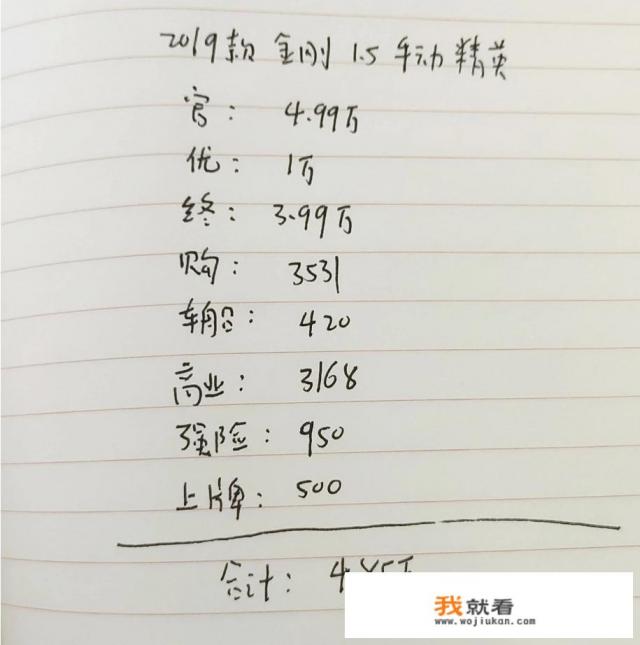 2019款 金刚 1.5 手动精英
官: 4.99万
优: 1万
终: 3.99万
购: 3531
车船: 420
商业: 3168
强险: 950
上牌: 500
合计:
我就看
www.wojiukan.com